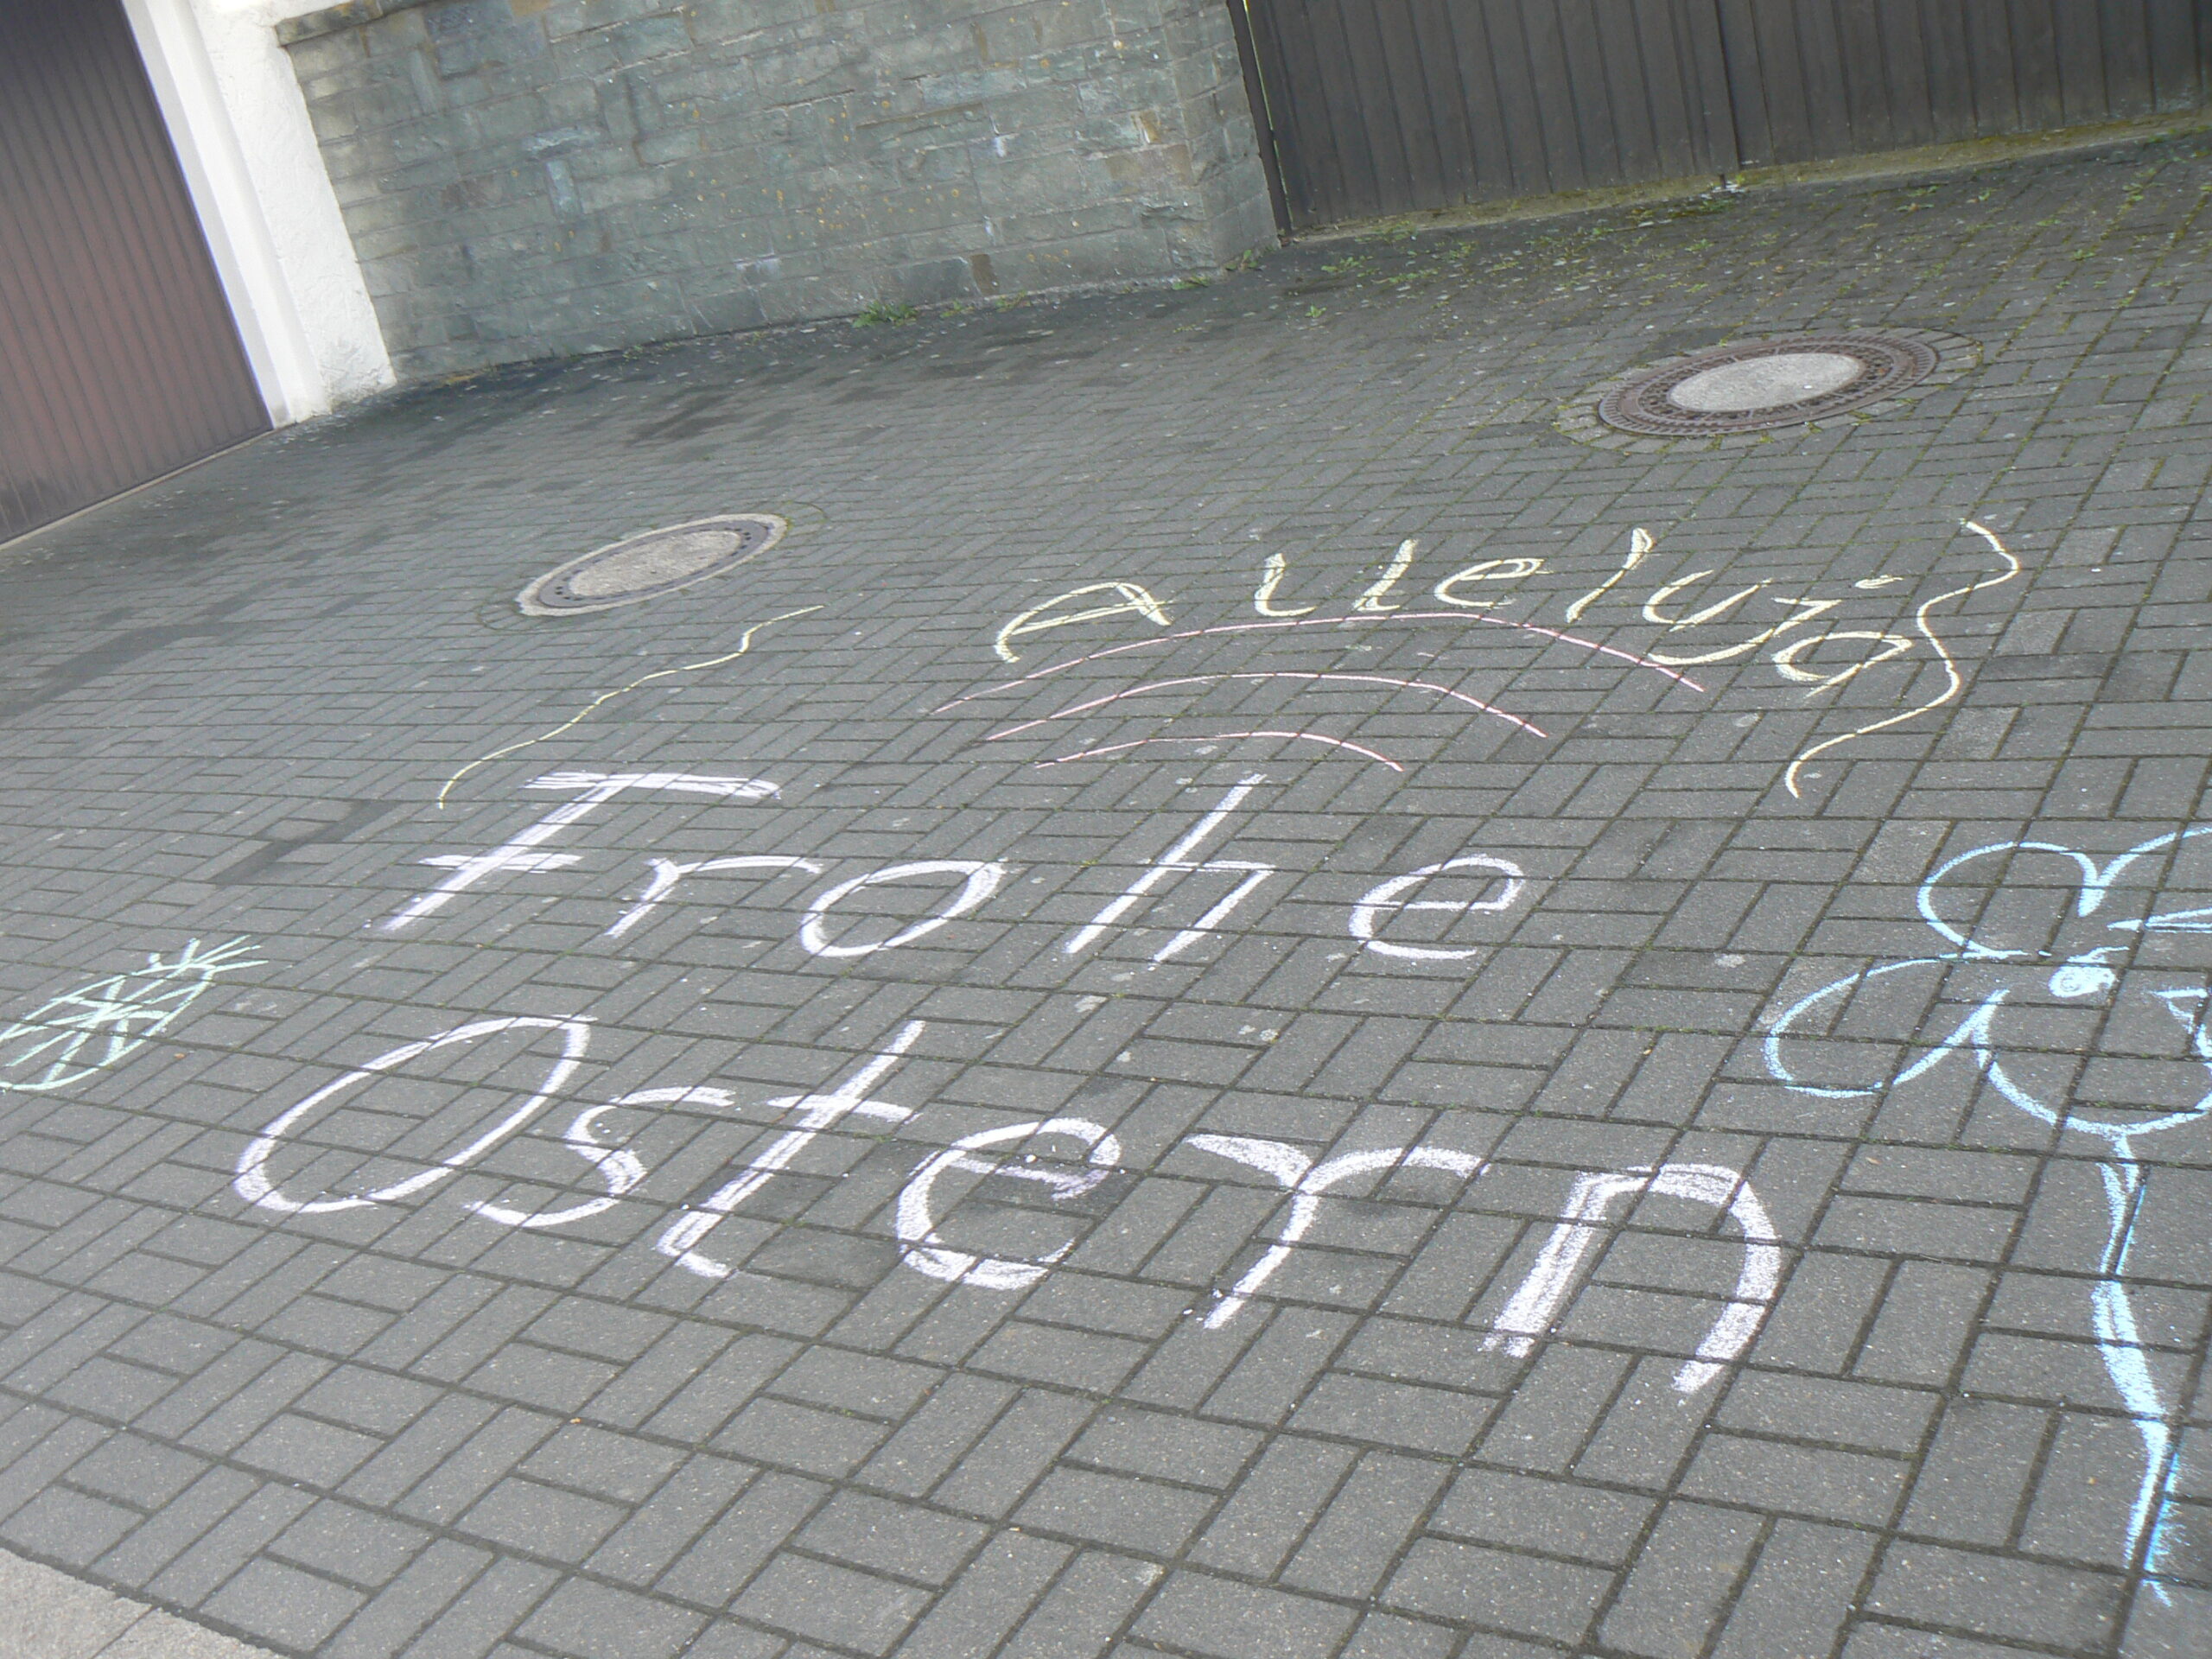 Alleluja
Frohe
Ostern